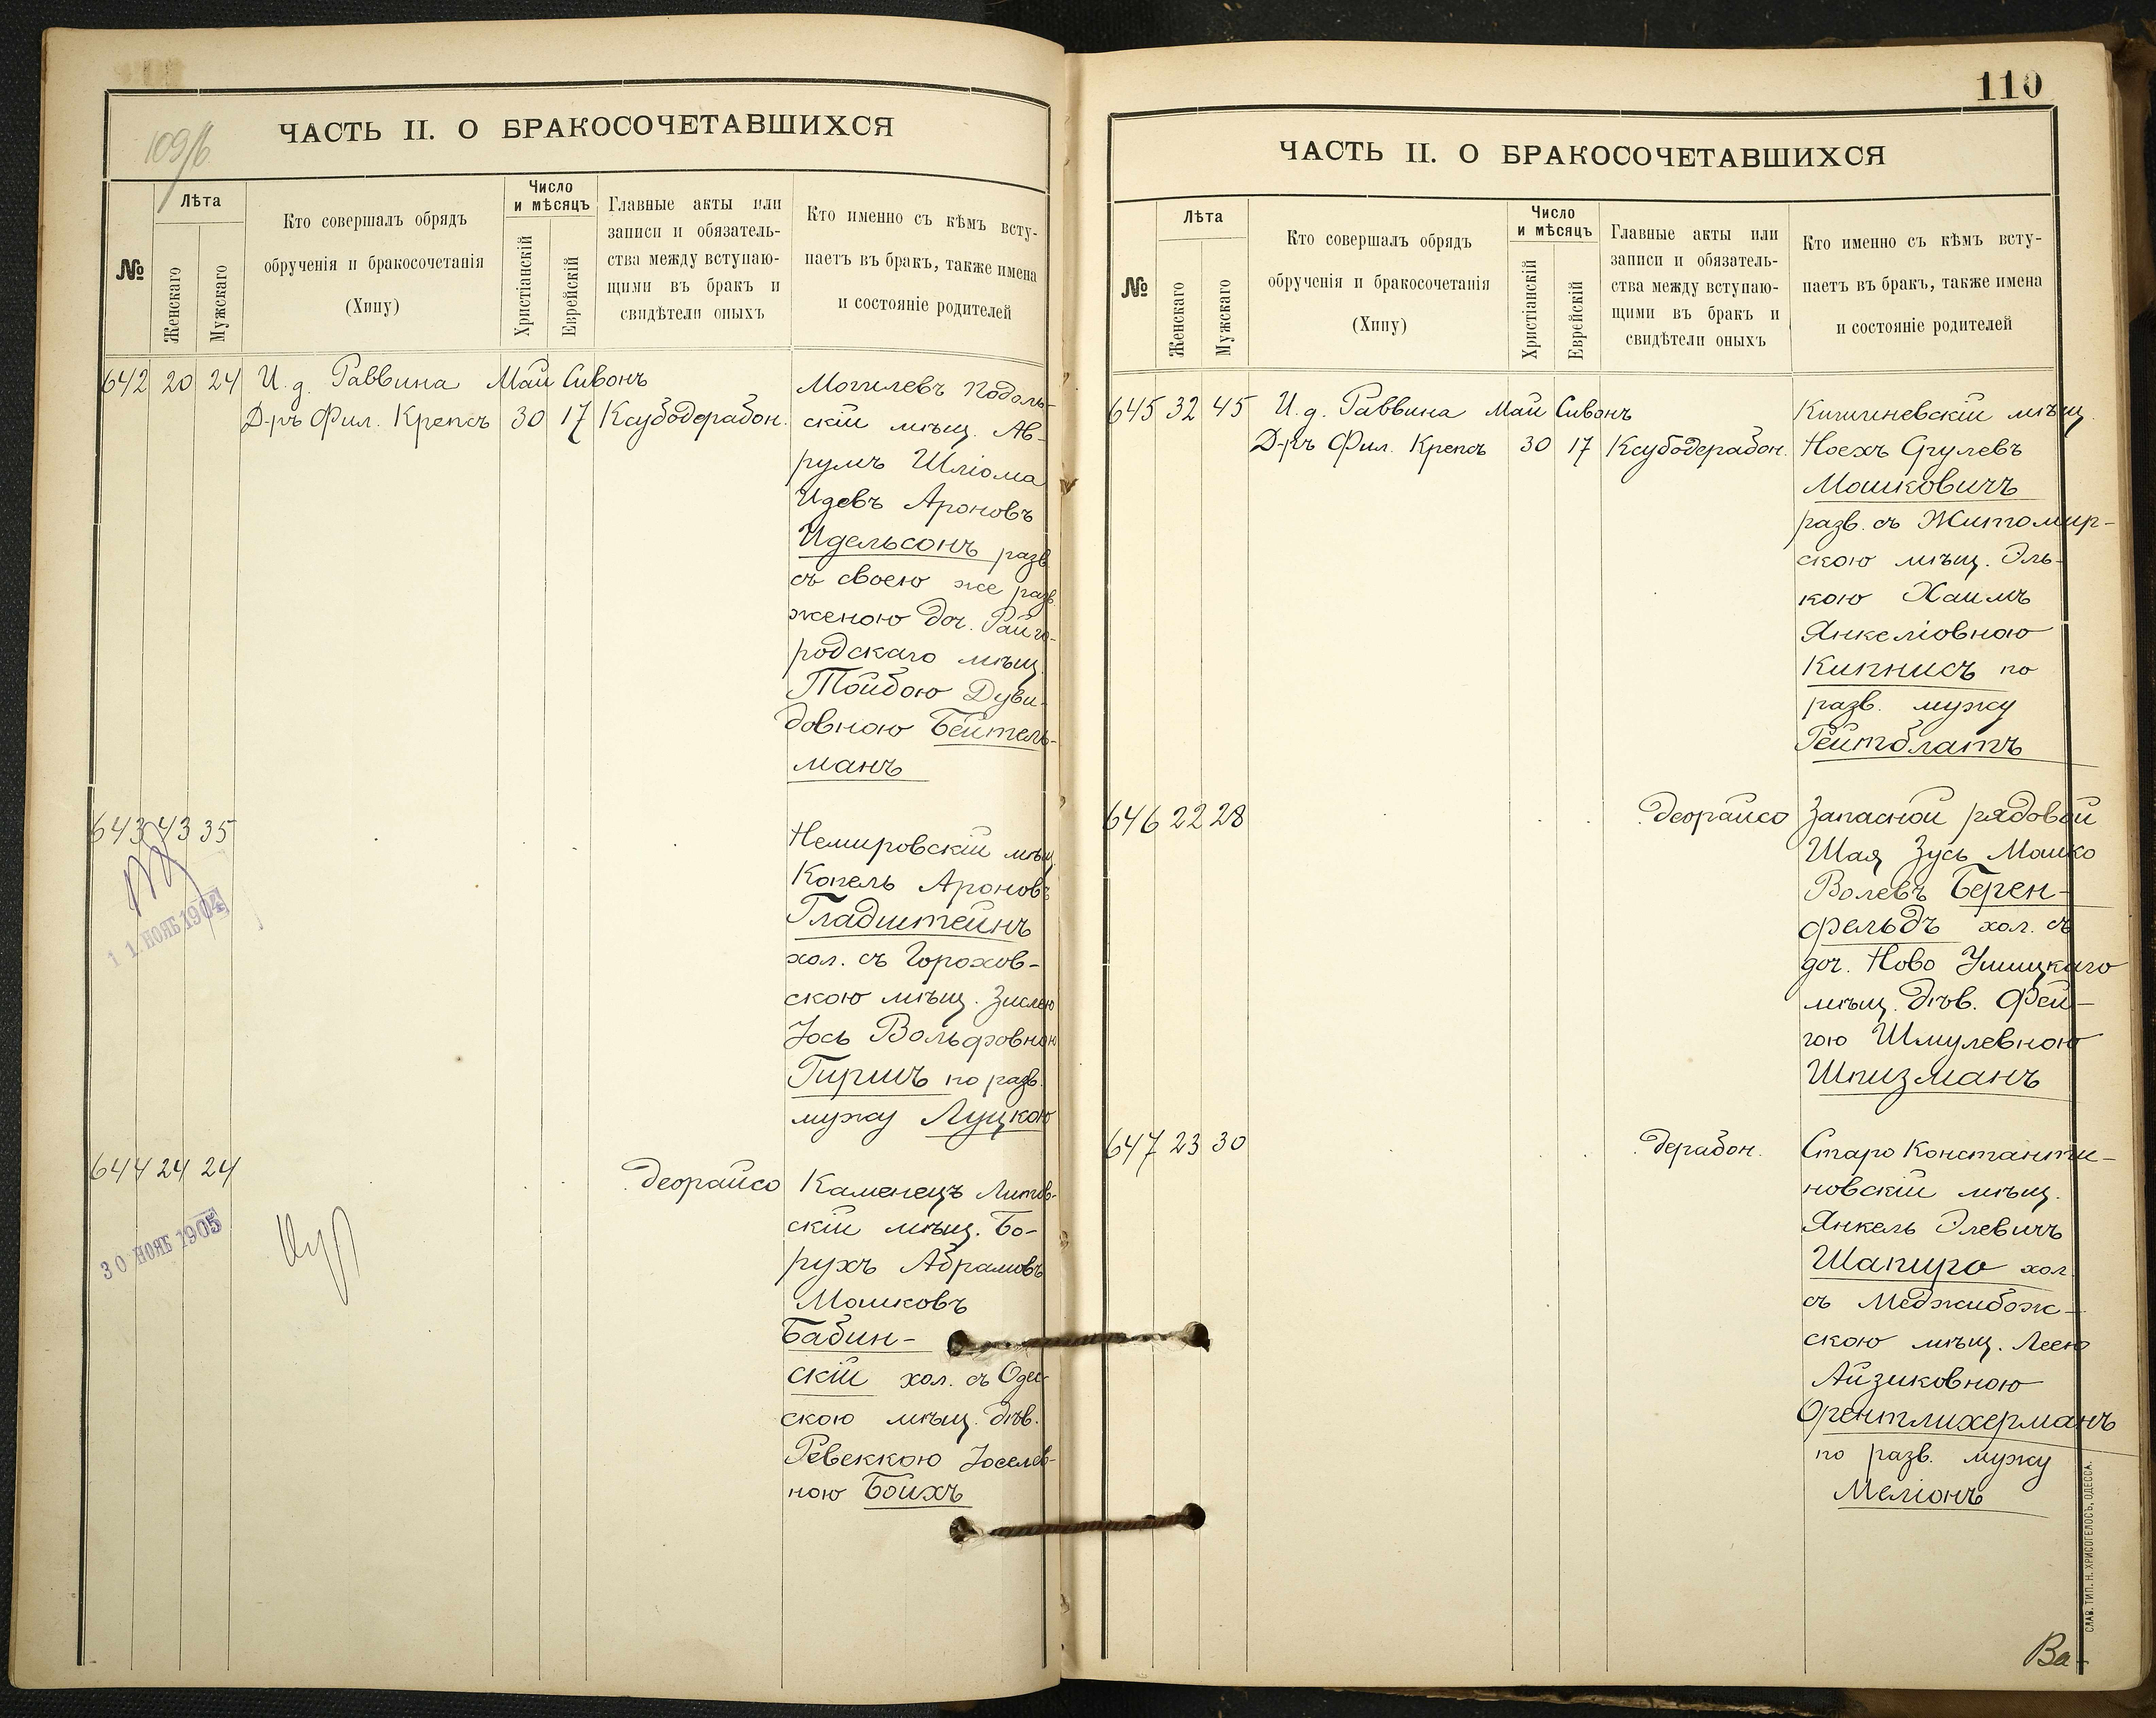 109/б
ЧАСТЬ II. О БРАКОСОЧЕТАВШИХСЯ
№
Лѣта
Женскаго
Мужскаго
Кто совершалъ обрядъ
обрученія и бракосочетанія
(Хипу)
Число
и мѣсяцъ
Христіанскій
Еврейскій
Главные акты или
записи и обязатель-
ства между вступаю-
щими въ бракъ и
свидѣтели оныхъ
Кто именно съ кѣмъ всту-
паетъ въ бракъ, также имена
и состояніе родителей
642 20 24 И. д. Раввина Май Сивонъ
Д-ръ Фил. Крепсъ 30 17 Ксубодерабон.
Могилевъ Подоль-
скій мѣщ. Ав-
румъ Шліома
Идевъ Ароновъ
Идельсонъ разв.
съ своею же разв.
женою доч. Райго-
родскаго мѣщ.
Тойбою Дуви-
довною Бейтель-
манъ
643 43 35
11. НОЯБ 1904
Немировскій мѣщ.
Копель Ароновъ
Гладштейнъ
хол. съ Горохов-
скою мѣщ. Зислею
Іось Вольфовною
Гиршъ по разв.
мужу Луцкою
644 24 24 деорайсо
30 НОЯБ 1905
Каменецъ Литов-
скій мѣщ. Бо-
рухъ Абрамовъ
Мошковъ
Бабин-
скій хол. съ Одес-
скою мѣщ. дѣв.
Ревеккою Іоселев-
ною Боихъ
110
ЧАСТЬ II. О БРАКОСОЧЕТАВШИХСЯ
№
Лѣта
Женскаго
Мужскаго
Кто совершалъ обрядъ
обрученія и бракосочетанія
(Хипу)
Число
и мѣсяцъ
Христіанскій
Еврейскій
Главные акты или
записи и обязатель-
ства между вступаю-
щими въ бракъ и
свидѣтели оныхъ
Кто именно съ кѣмъ всту-
паетъ въ бракъ, также имена
и состояніе родителей
645 32 45 И. д. Раввина Май Сивонъ
Д-ръ Фил. Крепсъ 30 17 Ксубодерабон.
Кишиневскій мѣщ.
Ноехъ Срулевъ
Мошковичъ
разв. съ Житомир-
скою мѣщ. Эль-
кою Хаимъ
Янкеліовною
Кипнисъ по
разв. мужу
Рейтблатъ
646 22 28 деорайсо
Запасной рядовой
Шая Зусь Мошко
Волевъ Берен-
фельдъ хол. съ
доч. Ново Ушицкаго
мѣщ. дѣв. Фей-
гою Шмулевною
Шпизманъ
647 23 30 дерабон.
Старо Константи-
новскій мѣщ.
Янкель Элевичъ
Шапиро хол.
съ Меджибож-
скою мѣщ. Леею
Айзиковною
Орентлихерманъ
по разв. мужу
Меліонъ
Ва-
СЛАВ. ТИП. Н. ХРИСОГЕЛОСЪ, ОДЕССА.